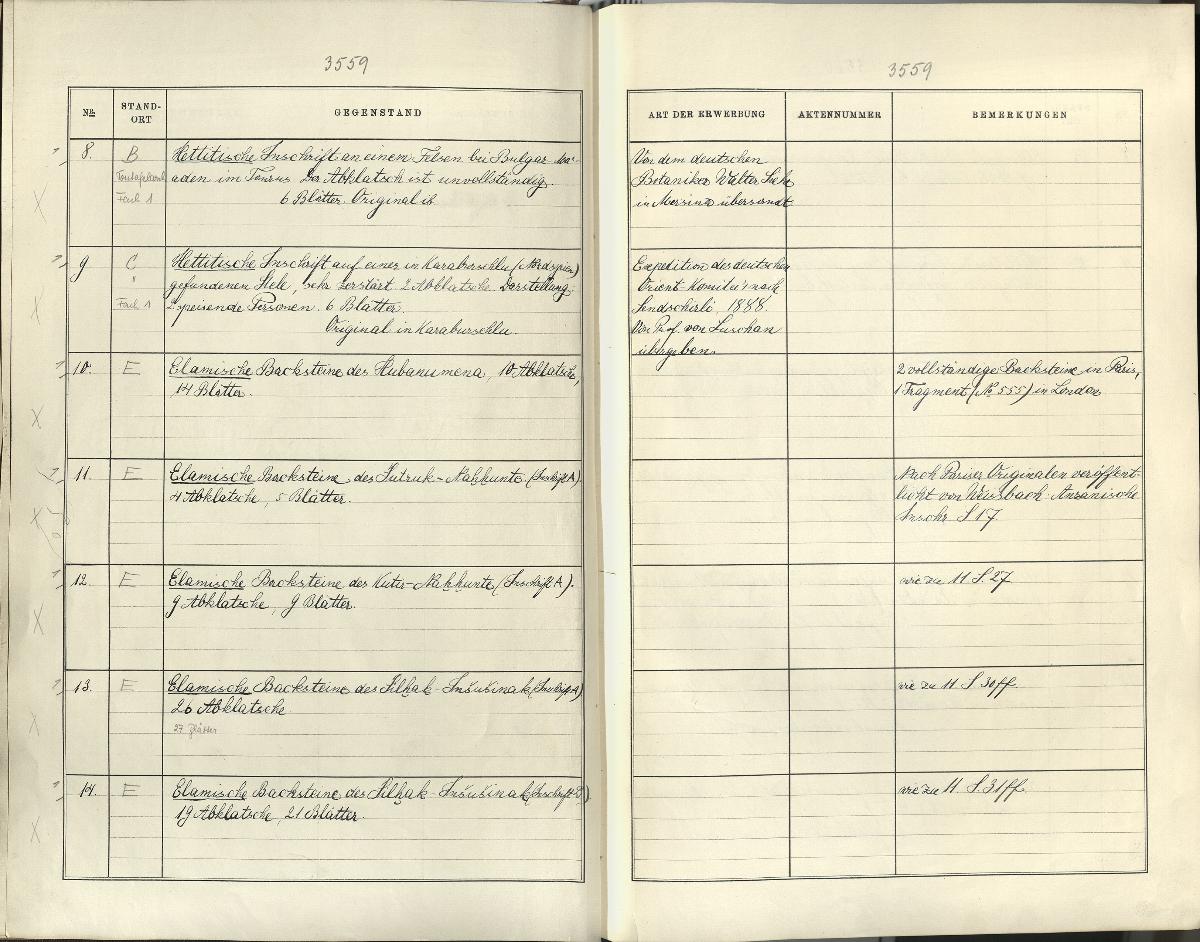 3559
3559
No
STAND-
ORT
GEGENSTAND
ART DER ERWERBUNG
AKTENNUMMER
BEMERKUNGEN
8.
B
Fach 1
Hettitische Inschrift an einen Felsen bei Bulgar-Ma-
aden im Taurus Der Abklatsch ist unvollständig.
6 Blätter. Original ib
Von dem deutschen
Botaniker Walter Siehe
in Mersina übersandt
9
C
"
Fach 1
Hettitische Inschrift auf einer in Karaburschlu (Nordsyrien)
gefundenen Stele, sehr zerstört. 2 Abklatsche. Darstellung:
2 speisende Personen. 6 Blätter.
Original in Karaburschlu.
Expedition des deutschen
Orient-Komités nach
Sendschirli, 1888.
Von Prof. von Luschan
übergeben.
10.
E
Elamische Backsteine des Hubanumena, 10 Abklatsche,
14 Blätter.
2 vollständige Backsteine in Paris,
1 Fragment (No 555) in London
11.
E
Elamische Backsteine des Šutruk-Naḫḫunte (Inschrift A).
4 Abklatsche, 5 Blätter.
Nach Pariser Originalen veröffent-
licht von Weissbach: Anzanische
Inschr. S 17.
12.
E
Elamische Backsteine des Kutir-Naḫḫunte (Inschrift A).
9 Abklatsche, 9 Blätter.
wie zu 11 S. 27
13.
E
Elamische Backsteine des Šilḫak-Inšušinak (Inschrift A)
26 Abklatsche
27 Blätter
wie zu 11 S 30ff.
14.
E
Elamische Backsteine des Šilḫak-Inšušinak (Inschrift B)
19 Abklatsche, 21 Blätter.
wie zu 11 S. 31ff.